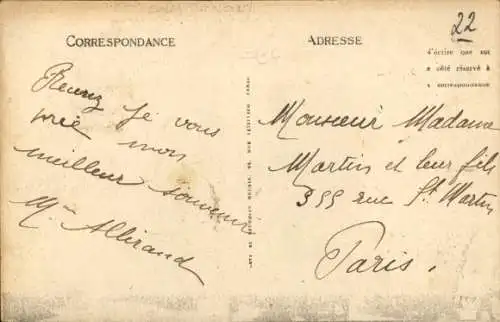 22
CORRESPONDANCE
ADRESSE
d'écrire que sur
e côté réservé à
a correspondance
Recevez je vous
prie mon
meilleur souvenir
Mme Allirand
Monsieur Madame
Martin et leur fils
355 rue St. Martin
Paris.